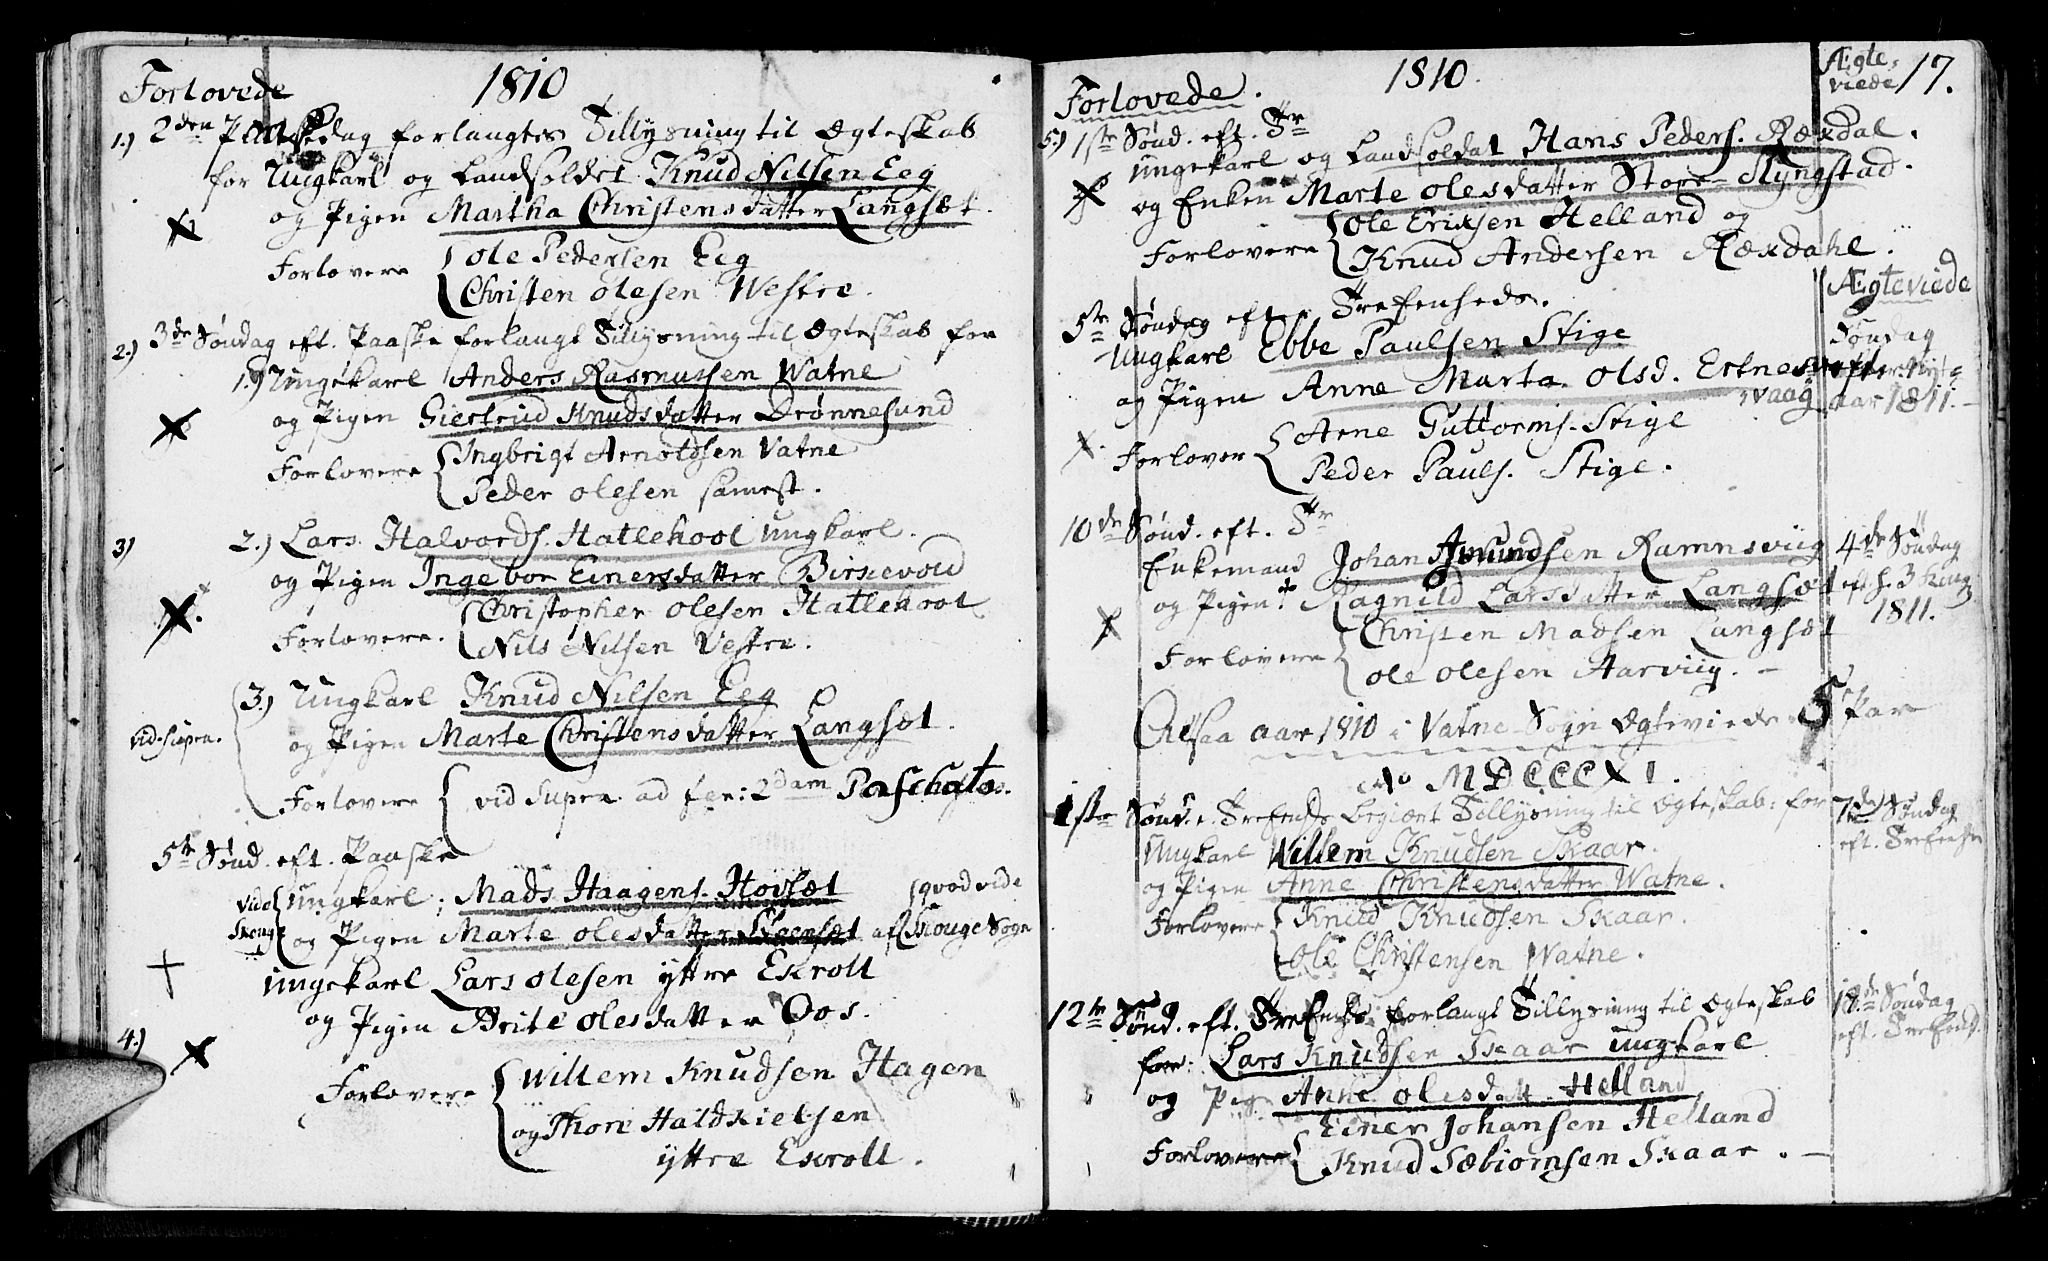 Forlovede 1810
1.) 2den Paaskedag forlangtes Tillysning til Ægteskab
for Ungkarl og Landsoldat Knud Nilsen Eeg
og Pigen Martha Christensdatter Langsæt.
Forlovere Ole Pedersen Eeg
Christen Olesen Westre.
2.) 3de Søndag eft. Paaske forlangt Tillysning til Ægteskab for
1.) Ungekarl Anders Rasmussen Watne
og Pigen Giertrud Knudsdatter Drønnesund
Forlovere Ingbrigt Arnoldsen Vatne
Peder Olesen samest.
3) 2.) Lars Halvords. Hatlehool ungkarl.
og Pigen Ingebor Einersdatter Birkevold
Forlovere. Christopher Olesen Hatlehool
Nils Nilsen Vestre.
3.) Ungkarl Knud Nilsen Eeg
vid. supra. og Pigen Marte Christensdatter Langsæt.
Forlovere vid supra ad fer: 2dam Paschatos.
5te Sønd. eft. Paaske
vide Ungkarl; Mads Haagens. Hovsæt qvod vide
Skouge og Pigen Marte Olesdatter af Skouge Sogn
Ungekarl Lars Olesen yttre Ekroll
og Pigen Brite Olesdatter Oos.
4.)
Forlovere Willem Knudsen Hagen
og Thore Haldkielsen
yttre Ekroll.
Forlovede. 1810. Ægte-
viede 17.
5.) 1ste Sønd. eft. Tr
ungekarl og Landsoldat Hans Peders. Rækdal.
og Enken Marte Olesdatter Store-Slyngstad.
Forlovere Ole Eriksen Helland og
Knud Andersen Rækdahl.
Ægteviede
5te Søndag eft. Trefenheds.
Ungkarl Ebbe Paulsen Stige
og Pigen Anne Marta Olsd. Estnes
vaag
Søndag
eft. Nyt-
aar 1811.
Forlover Arne Guttorms. Stige
Peder Pauls. Stige.
10de Sønd. eft. Tr
Enkemand Johan Amundsen Ramnsviig
og Pigen Ragnild Larsdatter Langsæt
4de Søndag
eft h. 3 Kong
1811.
Forlovere Christen Madsen Langsæt
Ole Olesen Aarviig.
Altsaa aar 1810 i Vatne Sogn Ægteviede 5 Par
Ao MDCCCXI.
1ste Sønd. e. Trefends begiært Tillysning til Ægteskab: for
Ungkarl Willem Knudsen Skaar.
og Pigen Anne Christensdatter Watne.
7de Søndag
eft. Trefenhe
Forlovere Knud Knudsen Skaar.
Ole Christensen Watne.
12te Sønd. eft. Trefends forlangt Tillysning til Ægteskab
for: Lars Knudsen Skaar ungkarl
og Pig. Anne Olesdatt. Helland
18de Søndag
eft. Trefend.
Forlovere Einer Johansen Helland
Knud Sæbiørnsen Skaar.